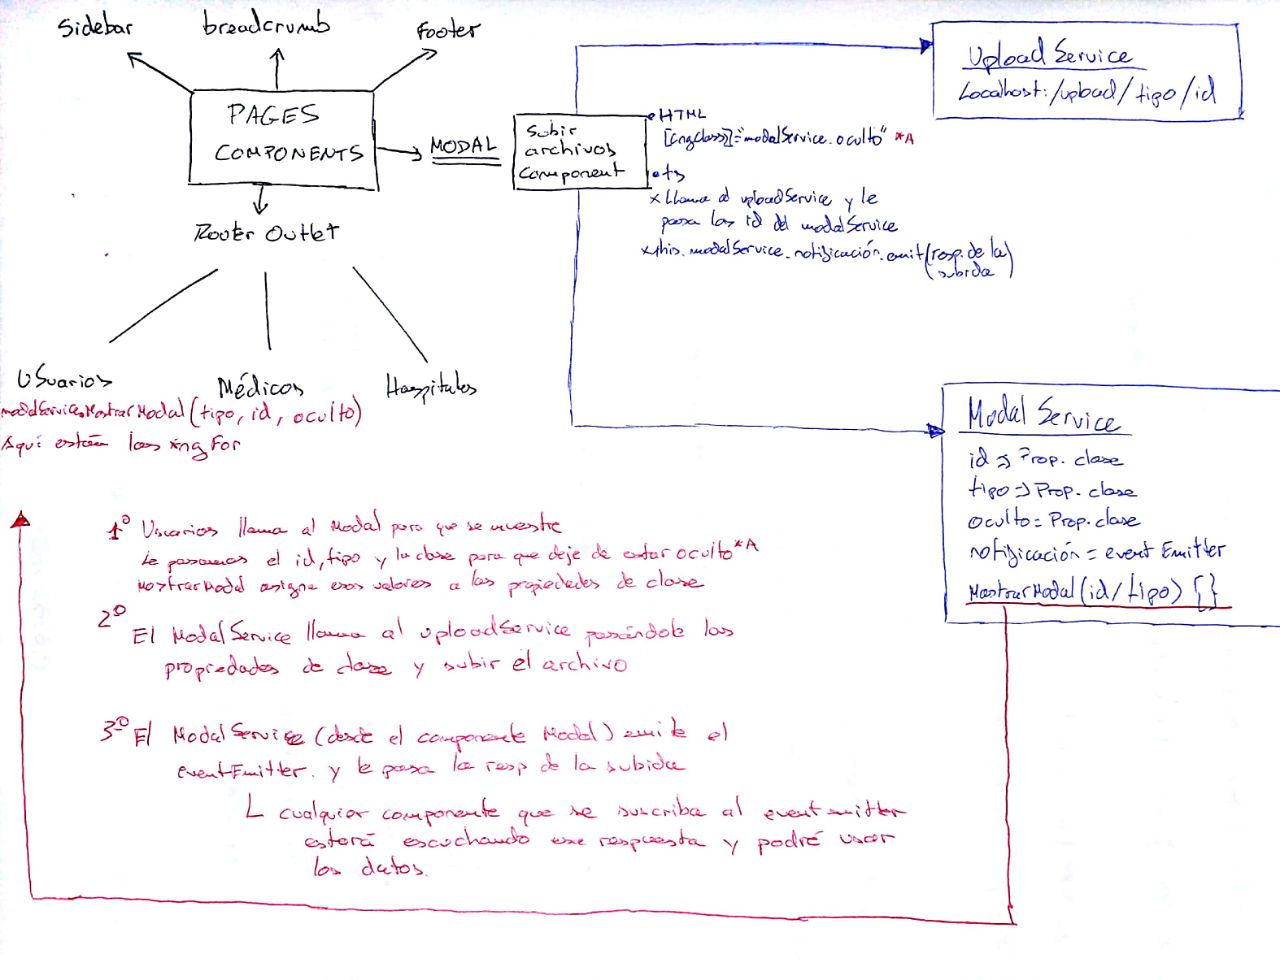 Sidebar
breadcrumb
Footer
PAGES
COMPONENTS
MODAL
Router Outlet
Usuarios
Médicos
Hospitales
modalService.MostrarModal(tipo, id, oculto)
Aquí están los *ngFor
Subir
archivos
Component
HTML
[(ngClass)]="modalService.oculto" *A
ts
x Llama al uploadService y le
pasa los id del modalService
x this.modalService.notificación.emit(resp. de la
subida)
Upload Service
Localhost:/upload/tipo/id
Modal Service
id => Prop. clase
tipo => Prop. clase
oculto = Prop. clase
notificación = event Emitter
MostrarModal(id/tipo) {}
1º Usuarios llama al Modal para que se muestre
Le pasamos el id, tipo y la clase para que deje de estar oculto *A
MostrarModal asigna esos valores a las propiedades de clase
2º El ModalService llama al uploadService pasándole las
propiedades de clase y subir el archivo
3º El ModalService (desde el componente Modal) emite el
eventEmitter. y le pasa la resp de la subida
L cualquier componente que se suscriba al eventemitter
estará escuchando esa respuesta y podré usar
los datos.